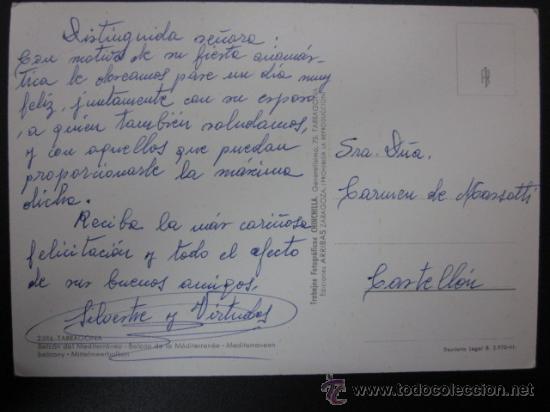 Distinguida señora:
Con motivo de su fiesta onomás-
tica le deseamos pase un día muy
feliz, juntamente con su esposo,
a quién también saludamos,
y con aquellos que puedan
proporcionarle la máxima
dicha.
Reciba la más cariñosa
felicitación y todo el afecto
de sus buenos amigos,
Silvestre y Virtudes
2396 TARRAGONA
Balcón del Mediterráneo - Balcon de la Méditerranée - Mediterranean
balcony - Mittelmeerbalkon
Trabajos Fotográficos CHINCHILLA. Generalísimo, 75. TARRAGONA
Ediciones ARRIBAS ZARAGOZA (PROHIBIDA LA REPRODUCCION)
Sra. Dña.
Carmen de
Castellón
Depósito Legal B.
todocoleccion
www.todocoleccion.net